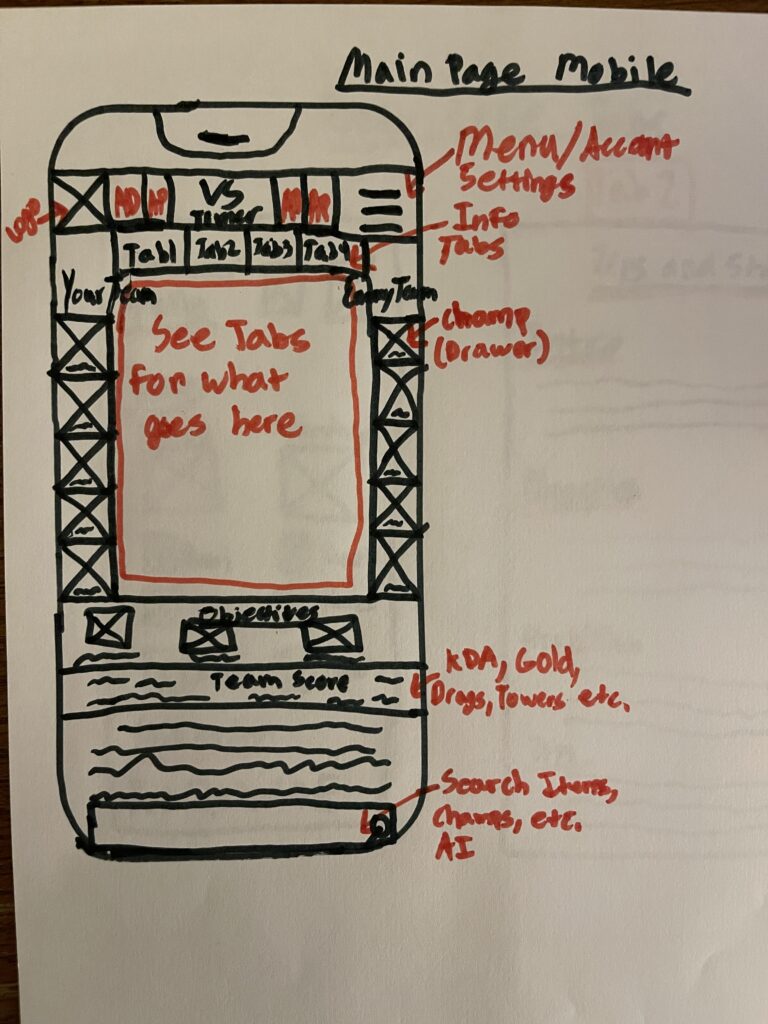 Main Page Mobile
Menu/Account
Settings
Logo
AD AP VS AD AP
Timer
Info
Tabs
Tab1 Tab2 Tab3 Tab4
Your Team Enemy Team
See Tabs
For what
goes here
Champ
(Drawer)
Objectives
Team Score
KDA, Gold,
Drags, Towers etc.
Search Items,
Champs, etc.
AI